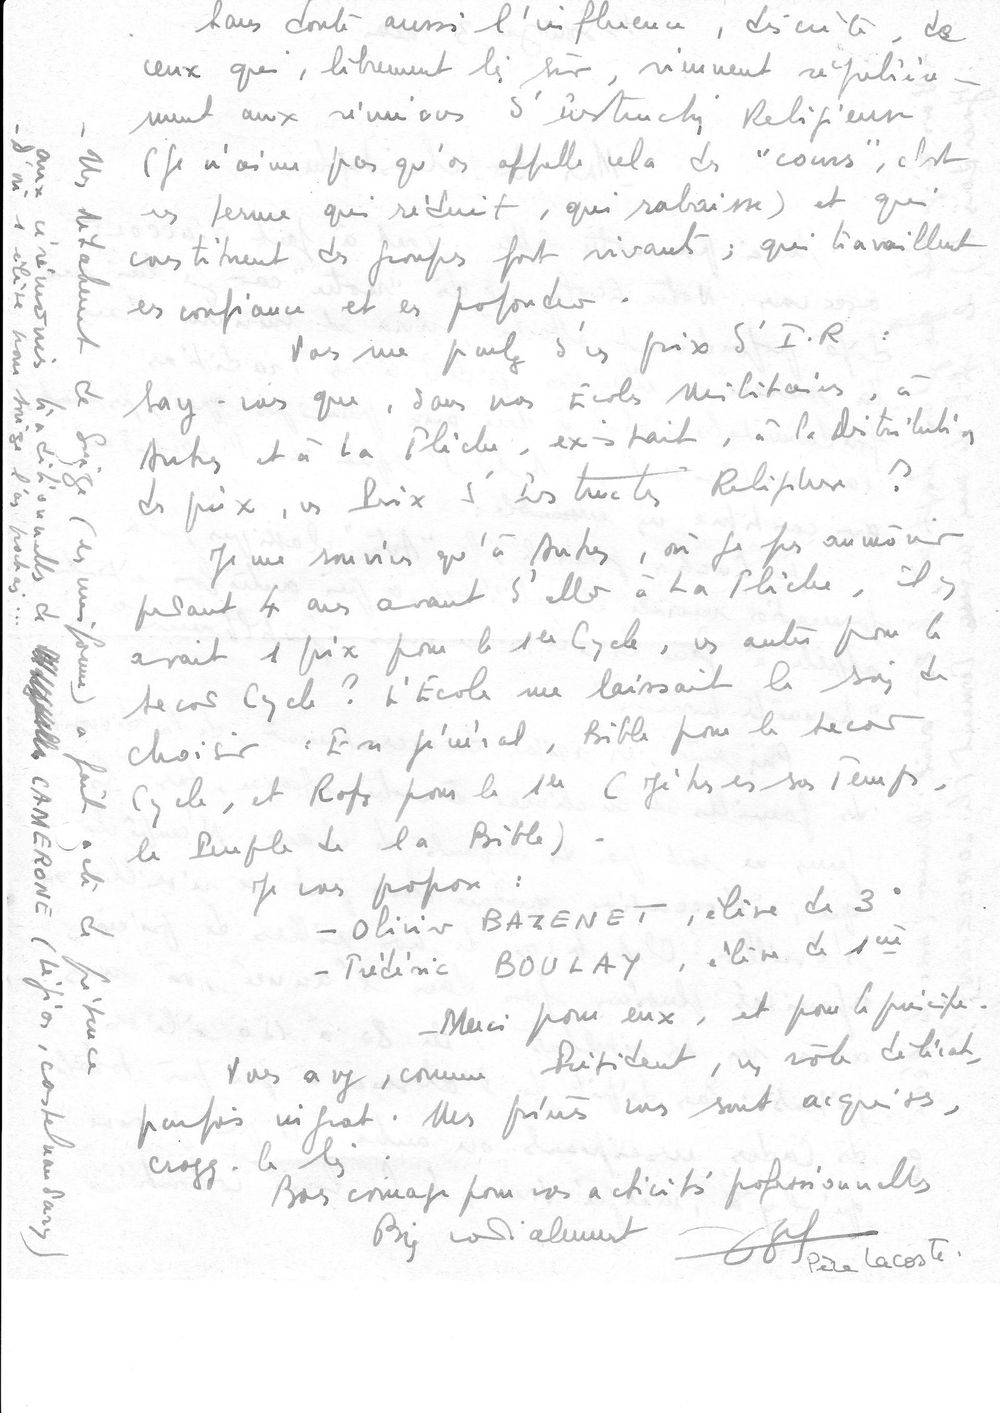 Sans doute aussi l'influence, discrète, de
ceux qui, librement bien sûr, viennent régulière-
ment aux réunions d'Instruction Religieuse
(Je n'aime pas qu'on appelle cela des "cours", c'est
un terme qui réduit, qui rabaisse) et qui
constituent des groupes fort vivants ; qui travaillent
en confiance et en profondeur.
Vous me parlez d'un prix d'I.R :
Savez-vous que, dans nos Écoles Militaires, à
Autun et à La Flèche, existait, à la distribution
des prix, un Prix d'Instruction Religieuse ?
Je me souviens qu'à Autun, où je fus aumônier
pendant 4 ans avant d'aller à La Flèche, il y
avait 1 prix pour le 1er Cycle, un autre pour le
second Cycle ? L'École me laissait le soin de
choisir . En général, Bible pour le second
Cycle, et Rops pour le 1er (Jésus en son Temps,
le Peuple de la Bible) -
Je vous propose :
- Olivier BAZENET, élève de 3°
- Frédéric BOULAY, élève de 1ère
- Merci pour eux, et pour le principe.
Vous avez, comme Président, un rôle délicat,
parfois ingrat. Mes prières vous sont acquises,
croyez-le bien.
Bon courage pour vos activités professionnelles
Bien cordialement
Père Lacoste.
- Un détachement de Série (en uniforme) a fait acte de présence
aux cérémonies traditionnelles de CAMERONE (Légion, Castelnaudary)
- D'où 1 élève nous